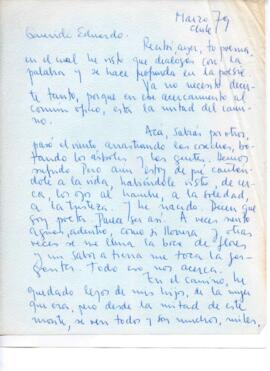 Marzo 79
Chile
Querido Eduardo.
Recibí ayer, tu poema
en el cual he visto que dialogas con la
palabra y se hace profunda en la poesía.
Ya no necesito decir
te tanto, porque en ese acercamiento al
común oficio, está la mitad del cami-
no.
Acá, sabrás por otros,
pasó el viento, arrastrando los coches, bo-
tando los árboles y las gentes. Hemos
sufrido. Pero aún estoy de pié cantán-
dole a la vida, habiéndole visto, de cer-
ca, los ojos al hambre, a la soledad,
a la tristeza. Y he nacido. Dicen que
soy poeta. Parece ser así. A veces siento
aguas adentro, como si lloviera y otras
veces se me llena la boca de flores
y un sabor a tierra me toca la gar-
ganta. Todo eso nos acerca.
En el camino, he
quedado lejos de mis hijos, de la mujer
que era, pero desde la mitad de este
monte, se ven todos y son muchos, miles,